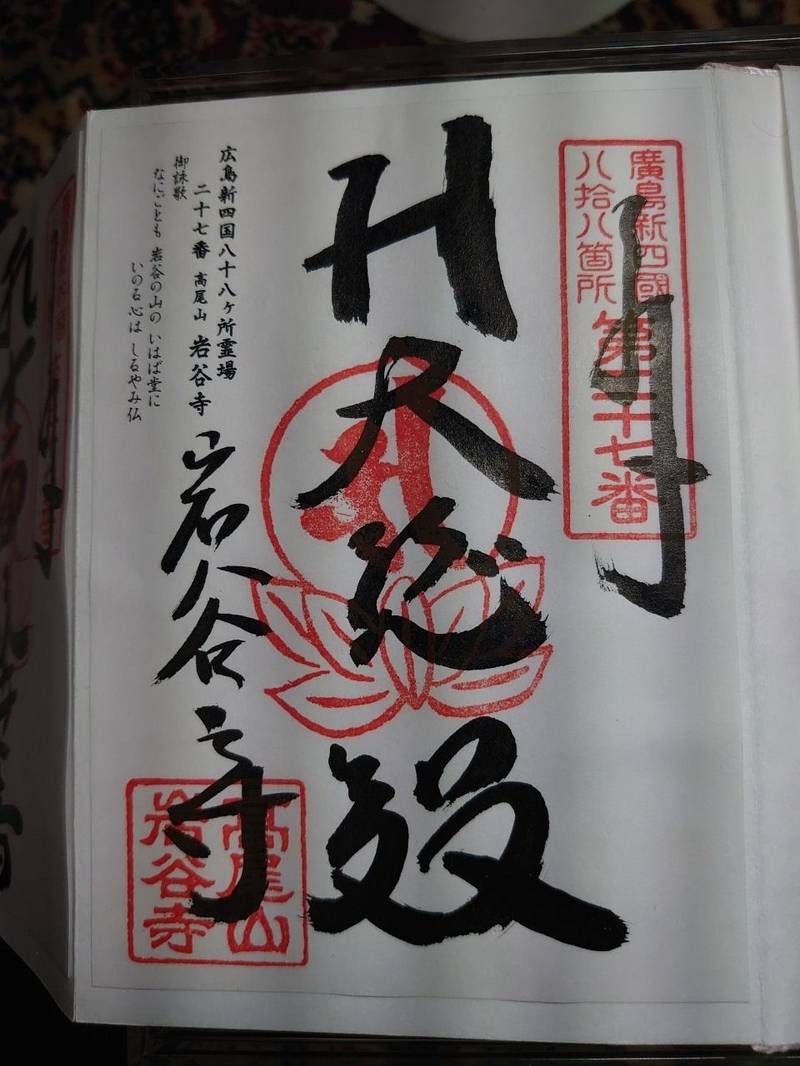 廣島新四國
八拾八箇所
第二十七番
大悲殿
広島新四国八十八ヶ所霊場
二十七番 高尾山 岩谷寺
御詠歌
なにごとも 岩谷の山の いはば堂に
いのる心は しるやみ仏
岩谷寺
高尾山
岩谷寺